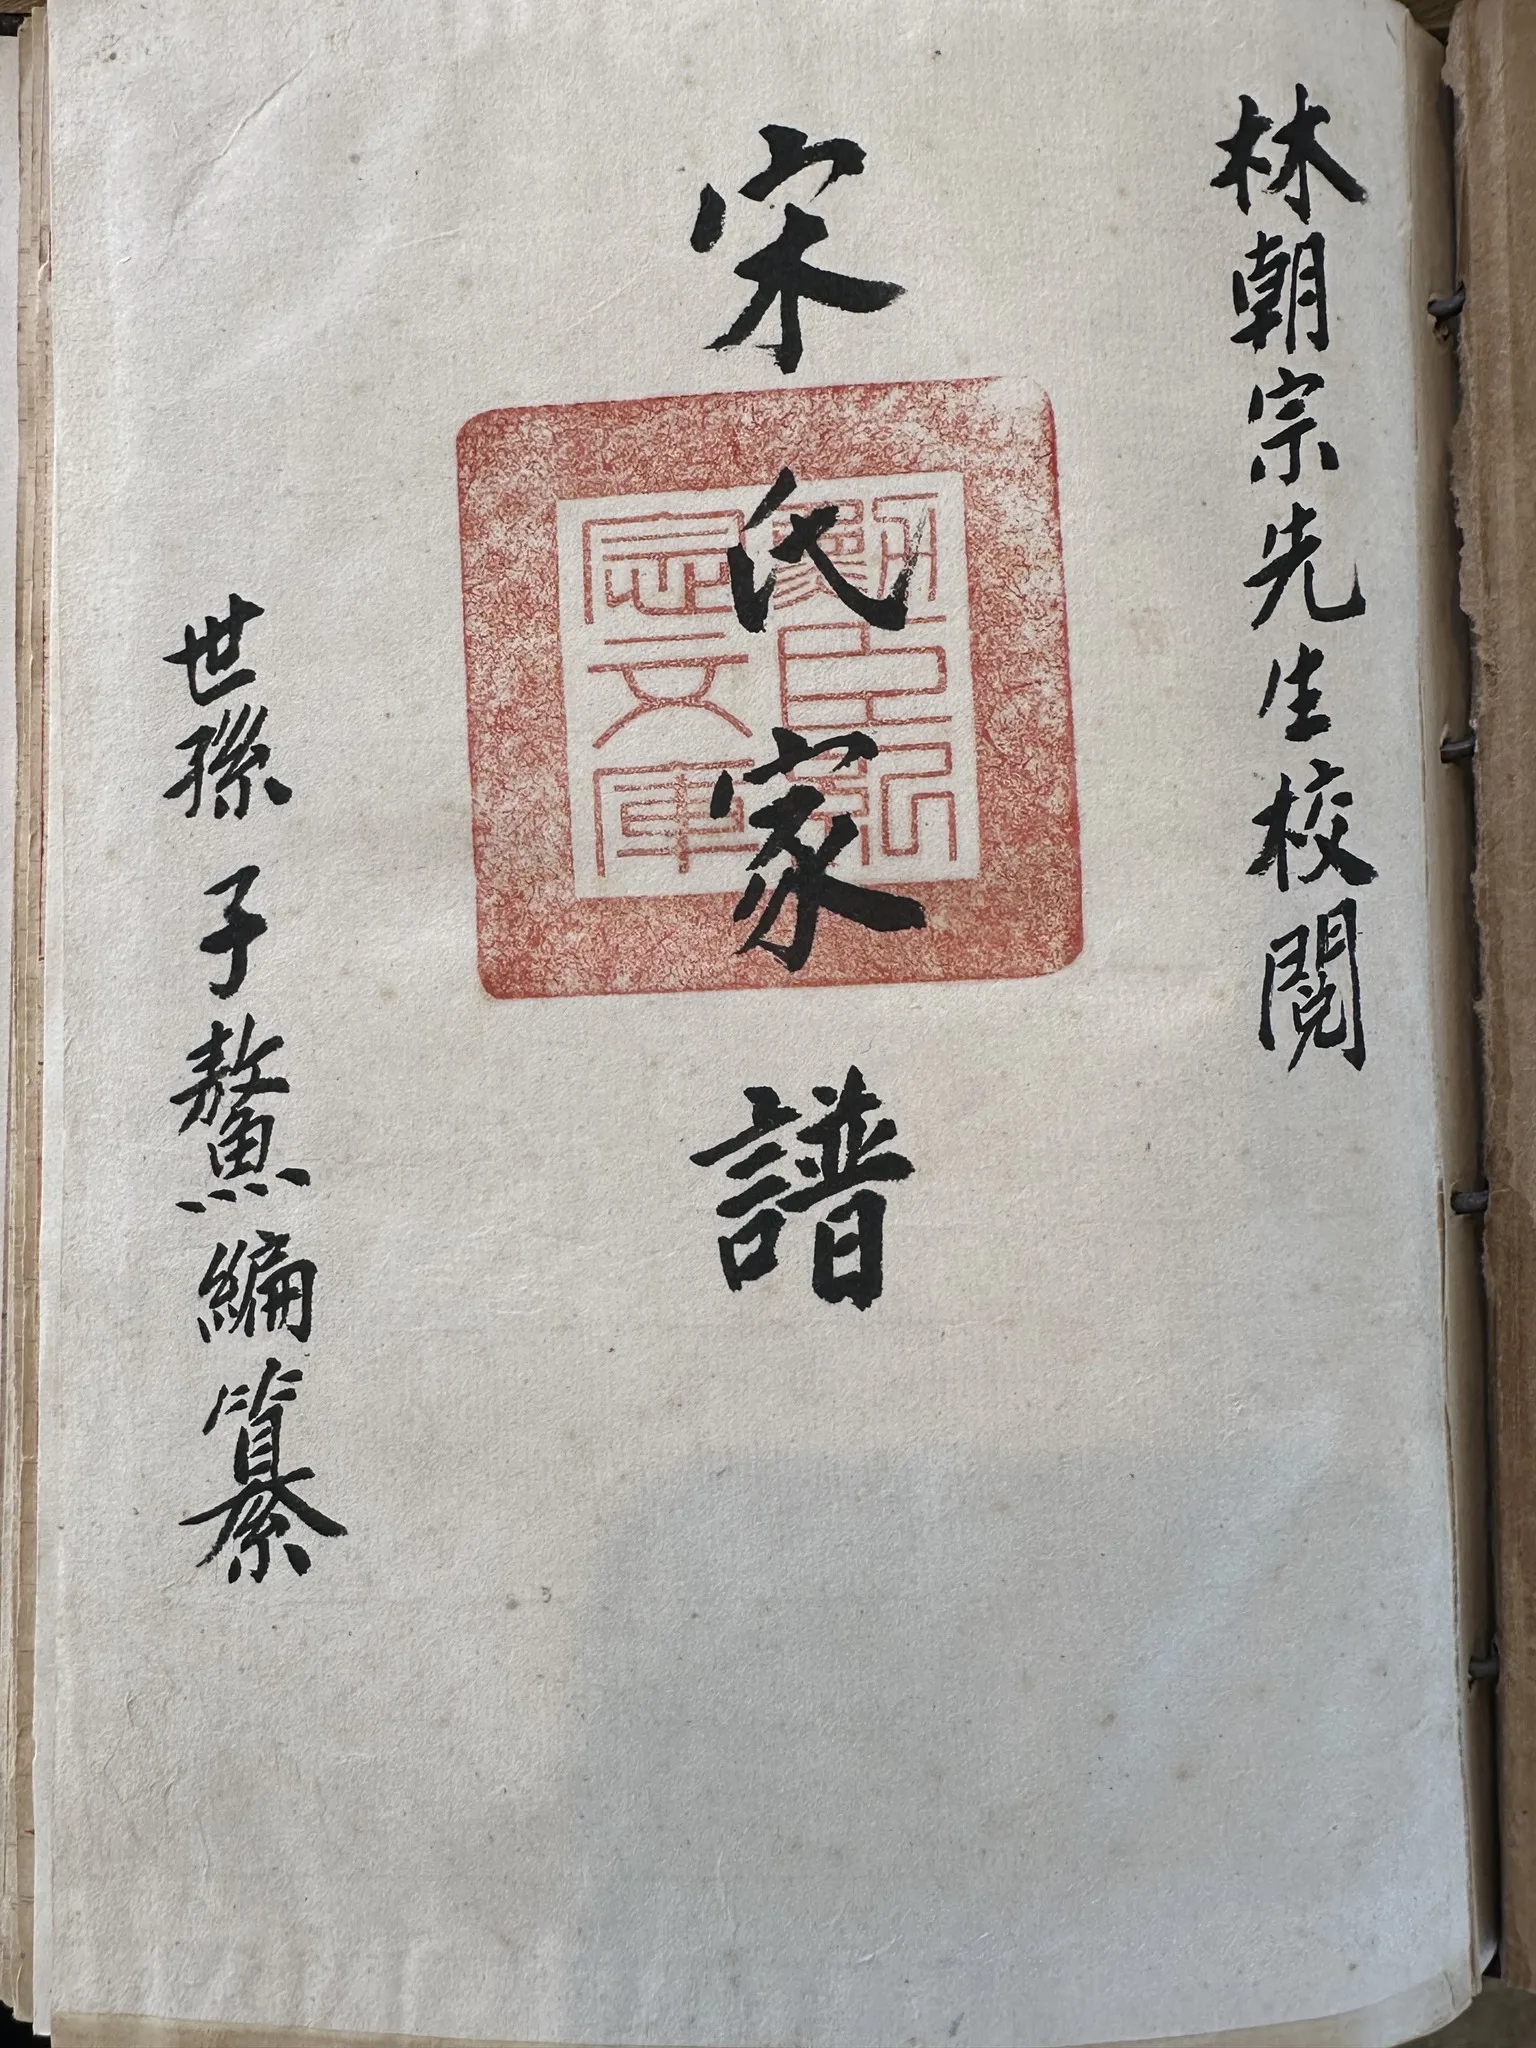 林朝宗先生校閱
宋氏家譜
世孫子鰲編纂
文庫